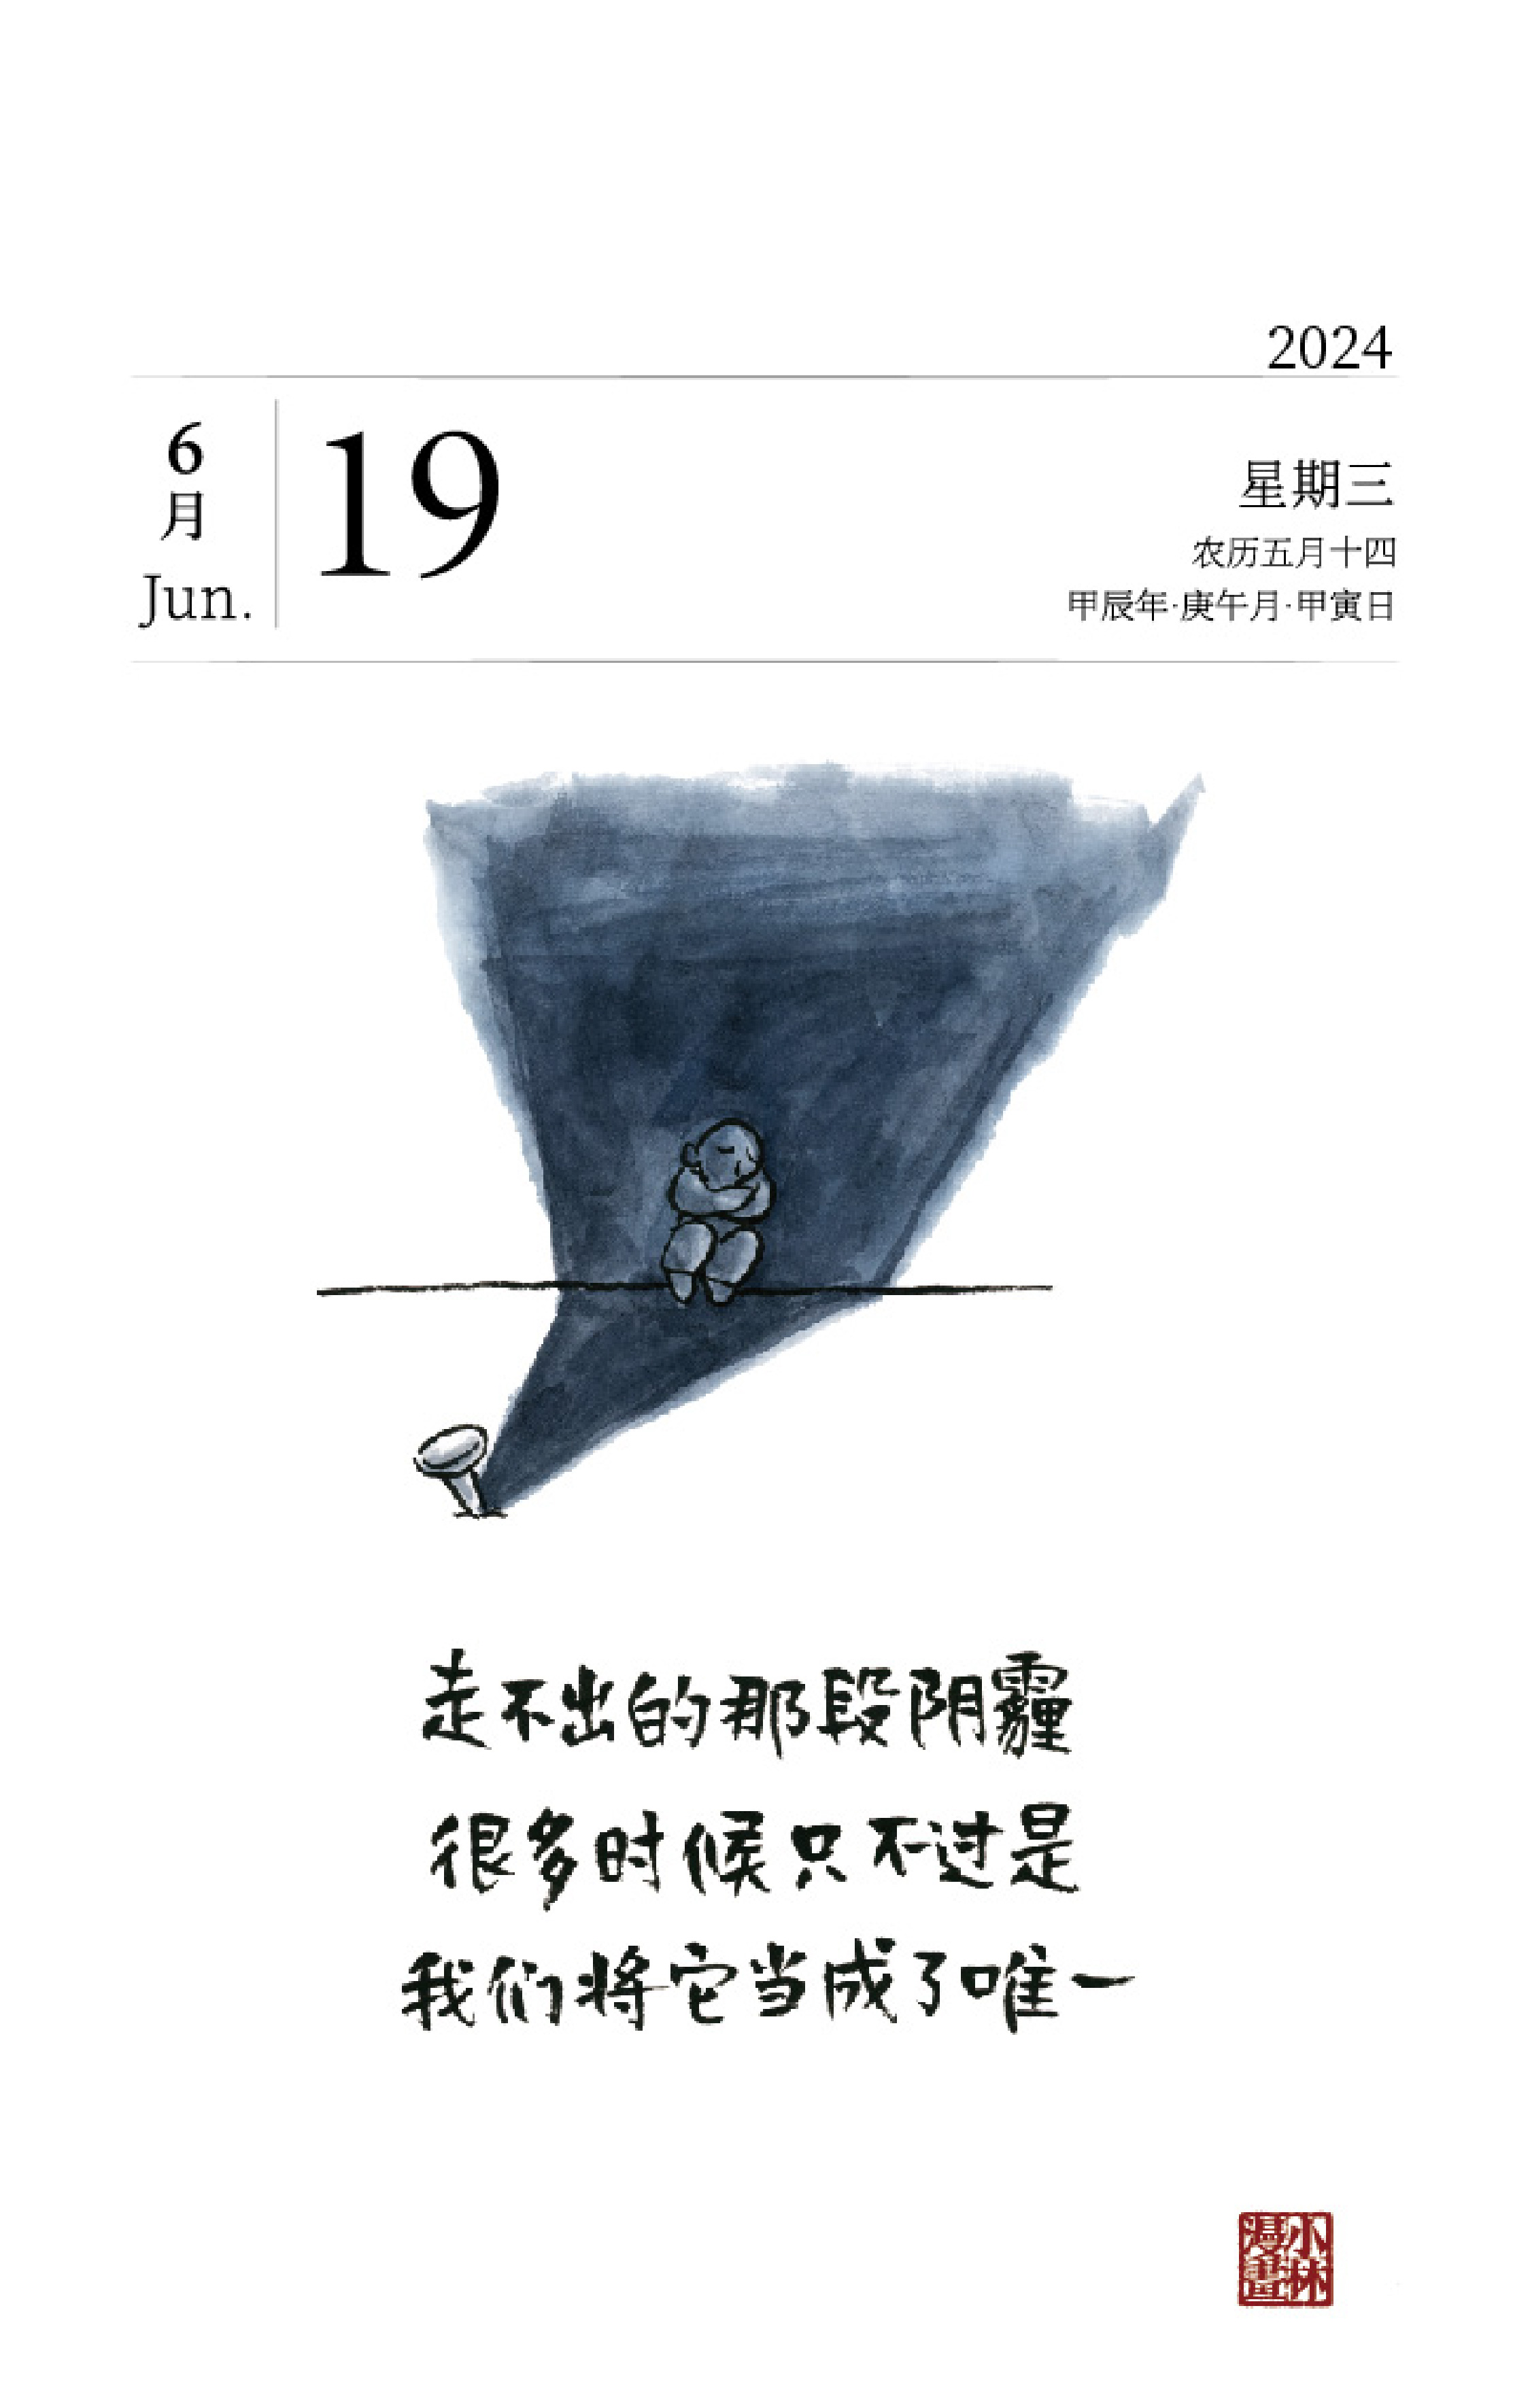 2024
6
月
Jun.
19
星期三
农历五月十四
甲辰年·庚午月·甲寅日
走不出的那段阴霾
很多时候只不过是
我们将它当成了唯一
小林
漫畫